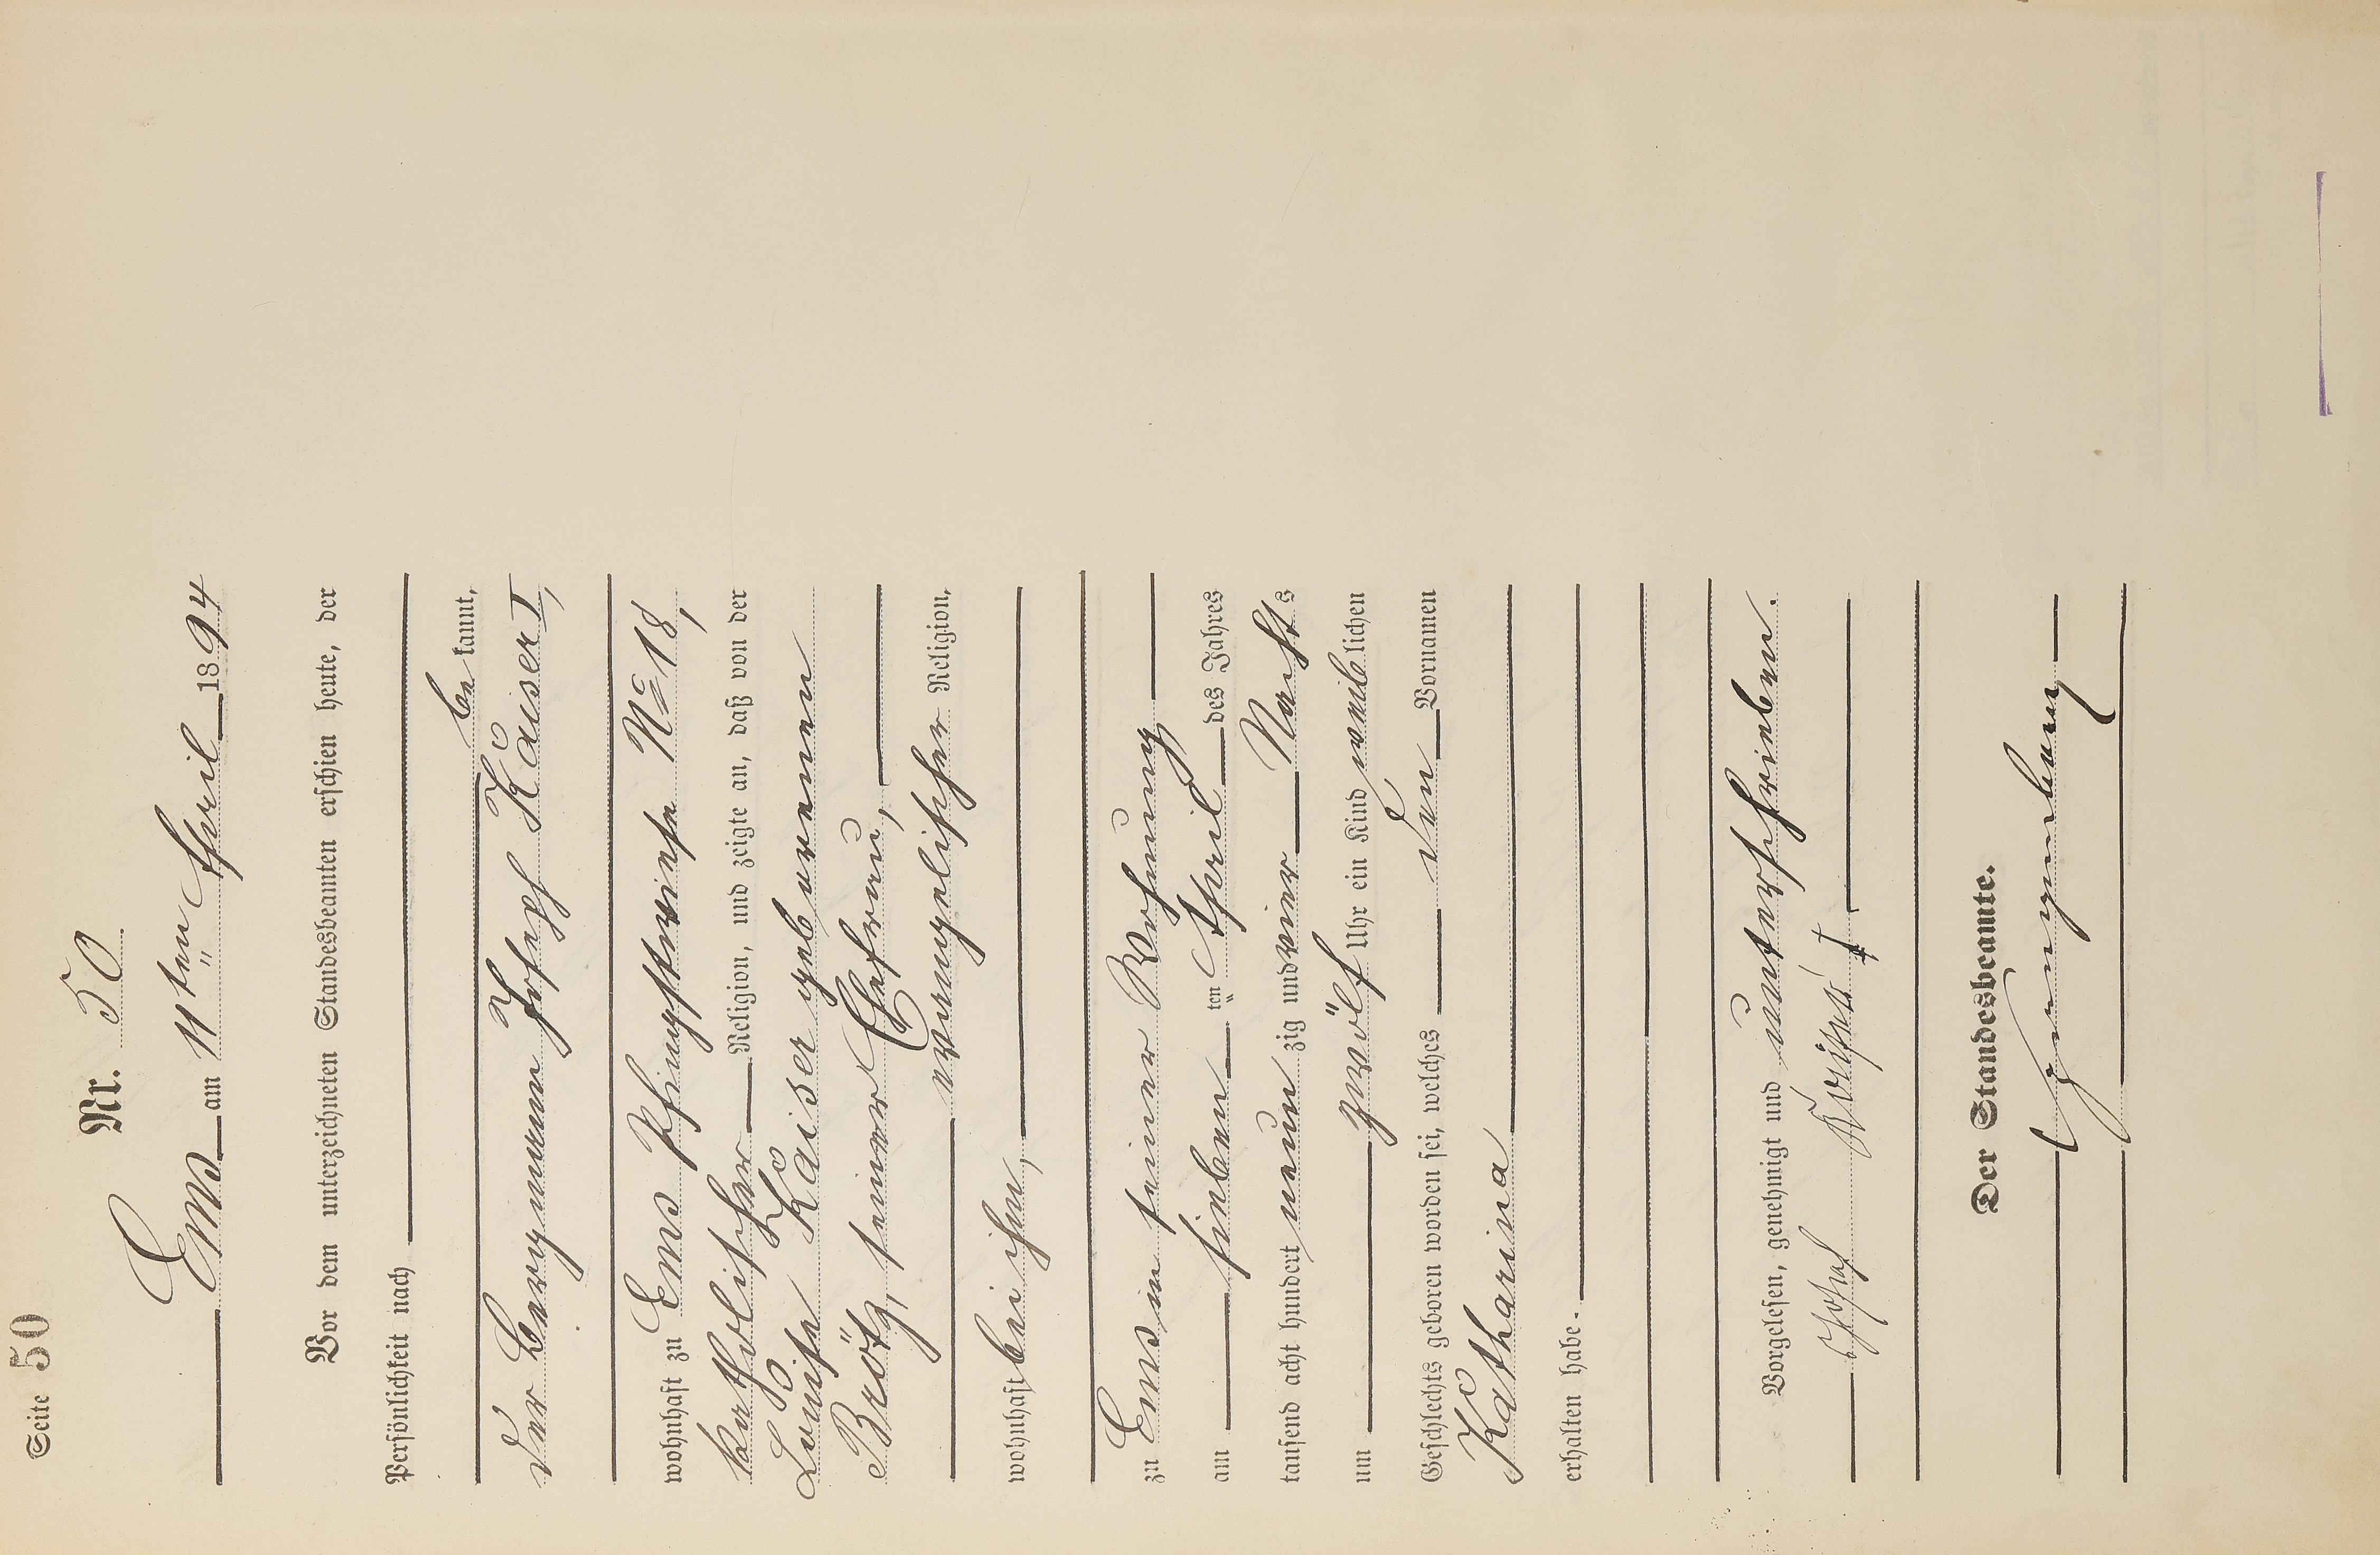 Seite 50
Nr. 50.
Ems am 11ten April 1894
Vor dem unterzeichneten Standesbeamten erschien heute, der
Persönlichkeit nach
be kannt,
der Bergmann Joseph Kaiser I,
wohnhaft zu Ems Pfingstwiese No 18,
katholischer Religion, und zeigte an, daß von der
Luise Kaiser geborenen
Brötz, seiner Ehefrau,
evangelischer Religion,
wohnhaft bei ihm,
zu Ems in seiner Wohnung
am sieben ten April des Jahres
tausend acht hundert neun zig und vier Nacht s
um zwölf Uhr ein Kind weib lichen
Geschlechts geboren worden sei, welches den Vornamen
Katharina
erhalten habe.
Vorgelesen, genehmigt und unterschrieben.
Joseph Kaiser I
Der Standesbeamte.